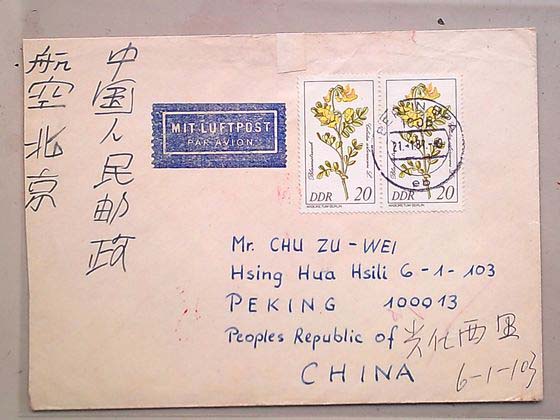 中国人民邮政
航空 北京
MIT LUFTPOST
PAR AVION
DDR 20
DDR 20
BERLIN
1085
21.-1.81.-
eb
Mr. CHU ZU-WEI
Hsing Hua Hsili 6-1-103
PEKING 100013
Peoples Republic of
CHINA
西里
6-1-103